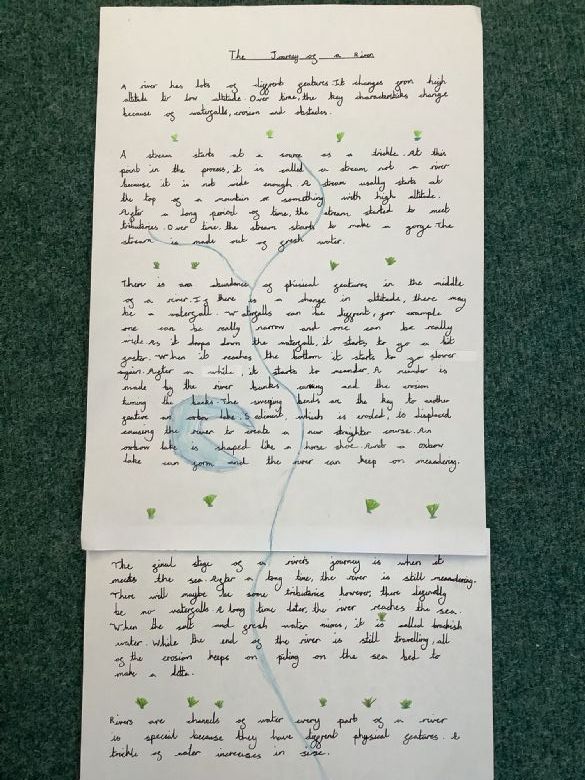 The Journey of a River
A river has lots of diffrent features. It changes from high
altitude to low altitude. Over time, the key characteristics change
because of watergalls, erosion and obstacles.
A stream starts at a source as a trickle. At this
point in the process, it is called a stream not a river
because it is not wide enough. A stream usally starts at
the top of a mountain or something with high altitude.
After a long period of time, the stream started to meet
tributaries. Over time, the stream starts to make a gorge. The
stream is made out of fresh water.
There is an abundance of phisical features in the middle
of a river. If there is a change in altitude, there may
be a waterfall. Waterfalls can be diffrent, for example
one can be really narrow and one can be really
wide. As it drops down the waterfall, it starts to go a bit
faster. When it reaches the bottom it starts to go slower
again. After a while, it starts to meander. A meander is
made by the river banks curving and the erosion
turning the banks. The sweeping bends are the key to another
feature an oxbow lake. Sediment which is eroded is displaced
causing the river to create a new straighter course. An
oxbow lake is shaped like a horse shoe. And a oxbow
lake can form and the river can keep on meandering.
The final stage of a river's journey is when it
meets the sea. After a long time, the river is still meandering.
There will maybe be some tributaries however, there
be no waterfalls. A long time later, the river reaches the sea.
When the salt and fresh water mixes, it is called brackish
water. While the end of the river is still travelling, all
of the erosion keeps on piling on the sea bed to
make a delta.
Rivers are channels of water every part of a river
is special because they have diffrent physical features. A
trickle of water increases in size.